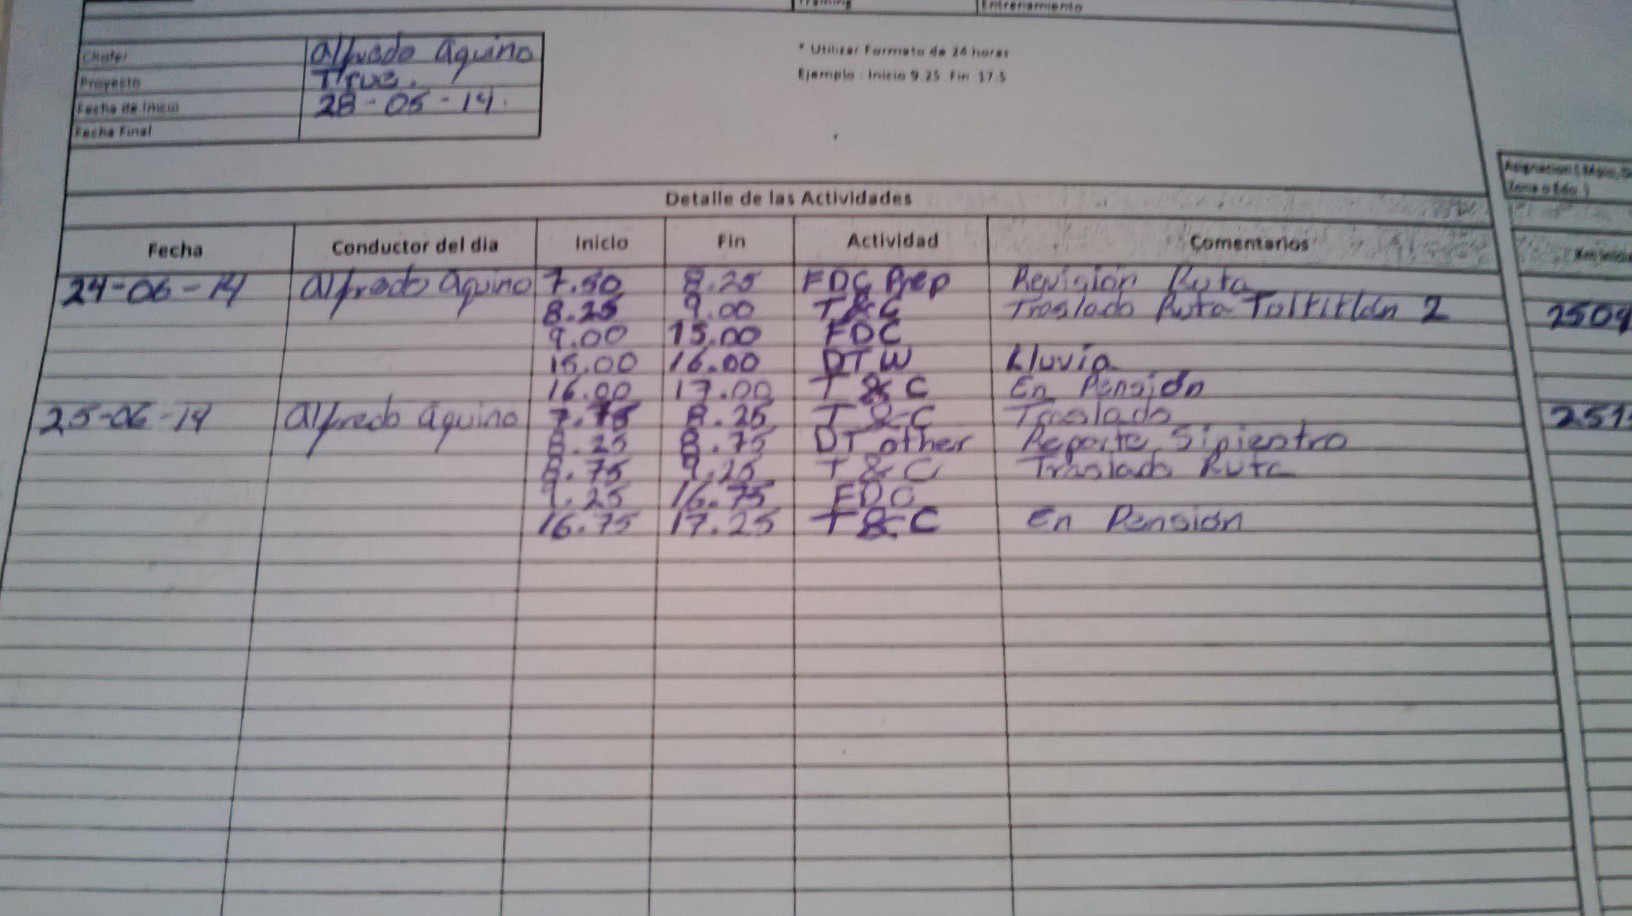 Training Entrenamiento
Chofer Alfredo Aquino
Proyecto True.
Fecha de Inicio 28-05-14.
Fecha Final
* Utilizar Formato de 24 horas
Ejemplo : Inicio 9.25 Fin 17.5
Asignacion ( Mpio,
Zona o Edo )
Detalle de las Actividades
Fecha Conductor del dia Inicio Fin Actividad Comentarios
24-06-14 Alfredo Aquino 7.50 8.25 FDC Prep Revisión Ruta
8.25 9.00 T&C Traslado Ruta Toltitlán 2 2509
9.00 15.00 FDC
15.00 16.00 DTW Lluvia
16.00 17.00 T&C En Pensión
25-06-14 Alfredo Aquino 7.75 8.25 T&C Traslado 251
8.25 8.75 DT other Reporte Sipiestro
8.75 9.25 T&C Traslado Ruta
9.25 16.75 FDC
16.75 17.25 T&C En Pensión